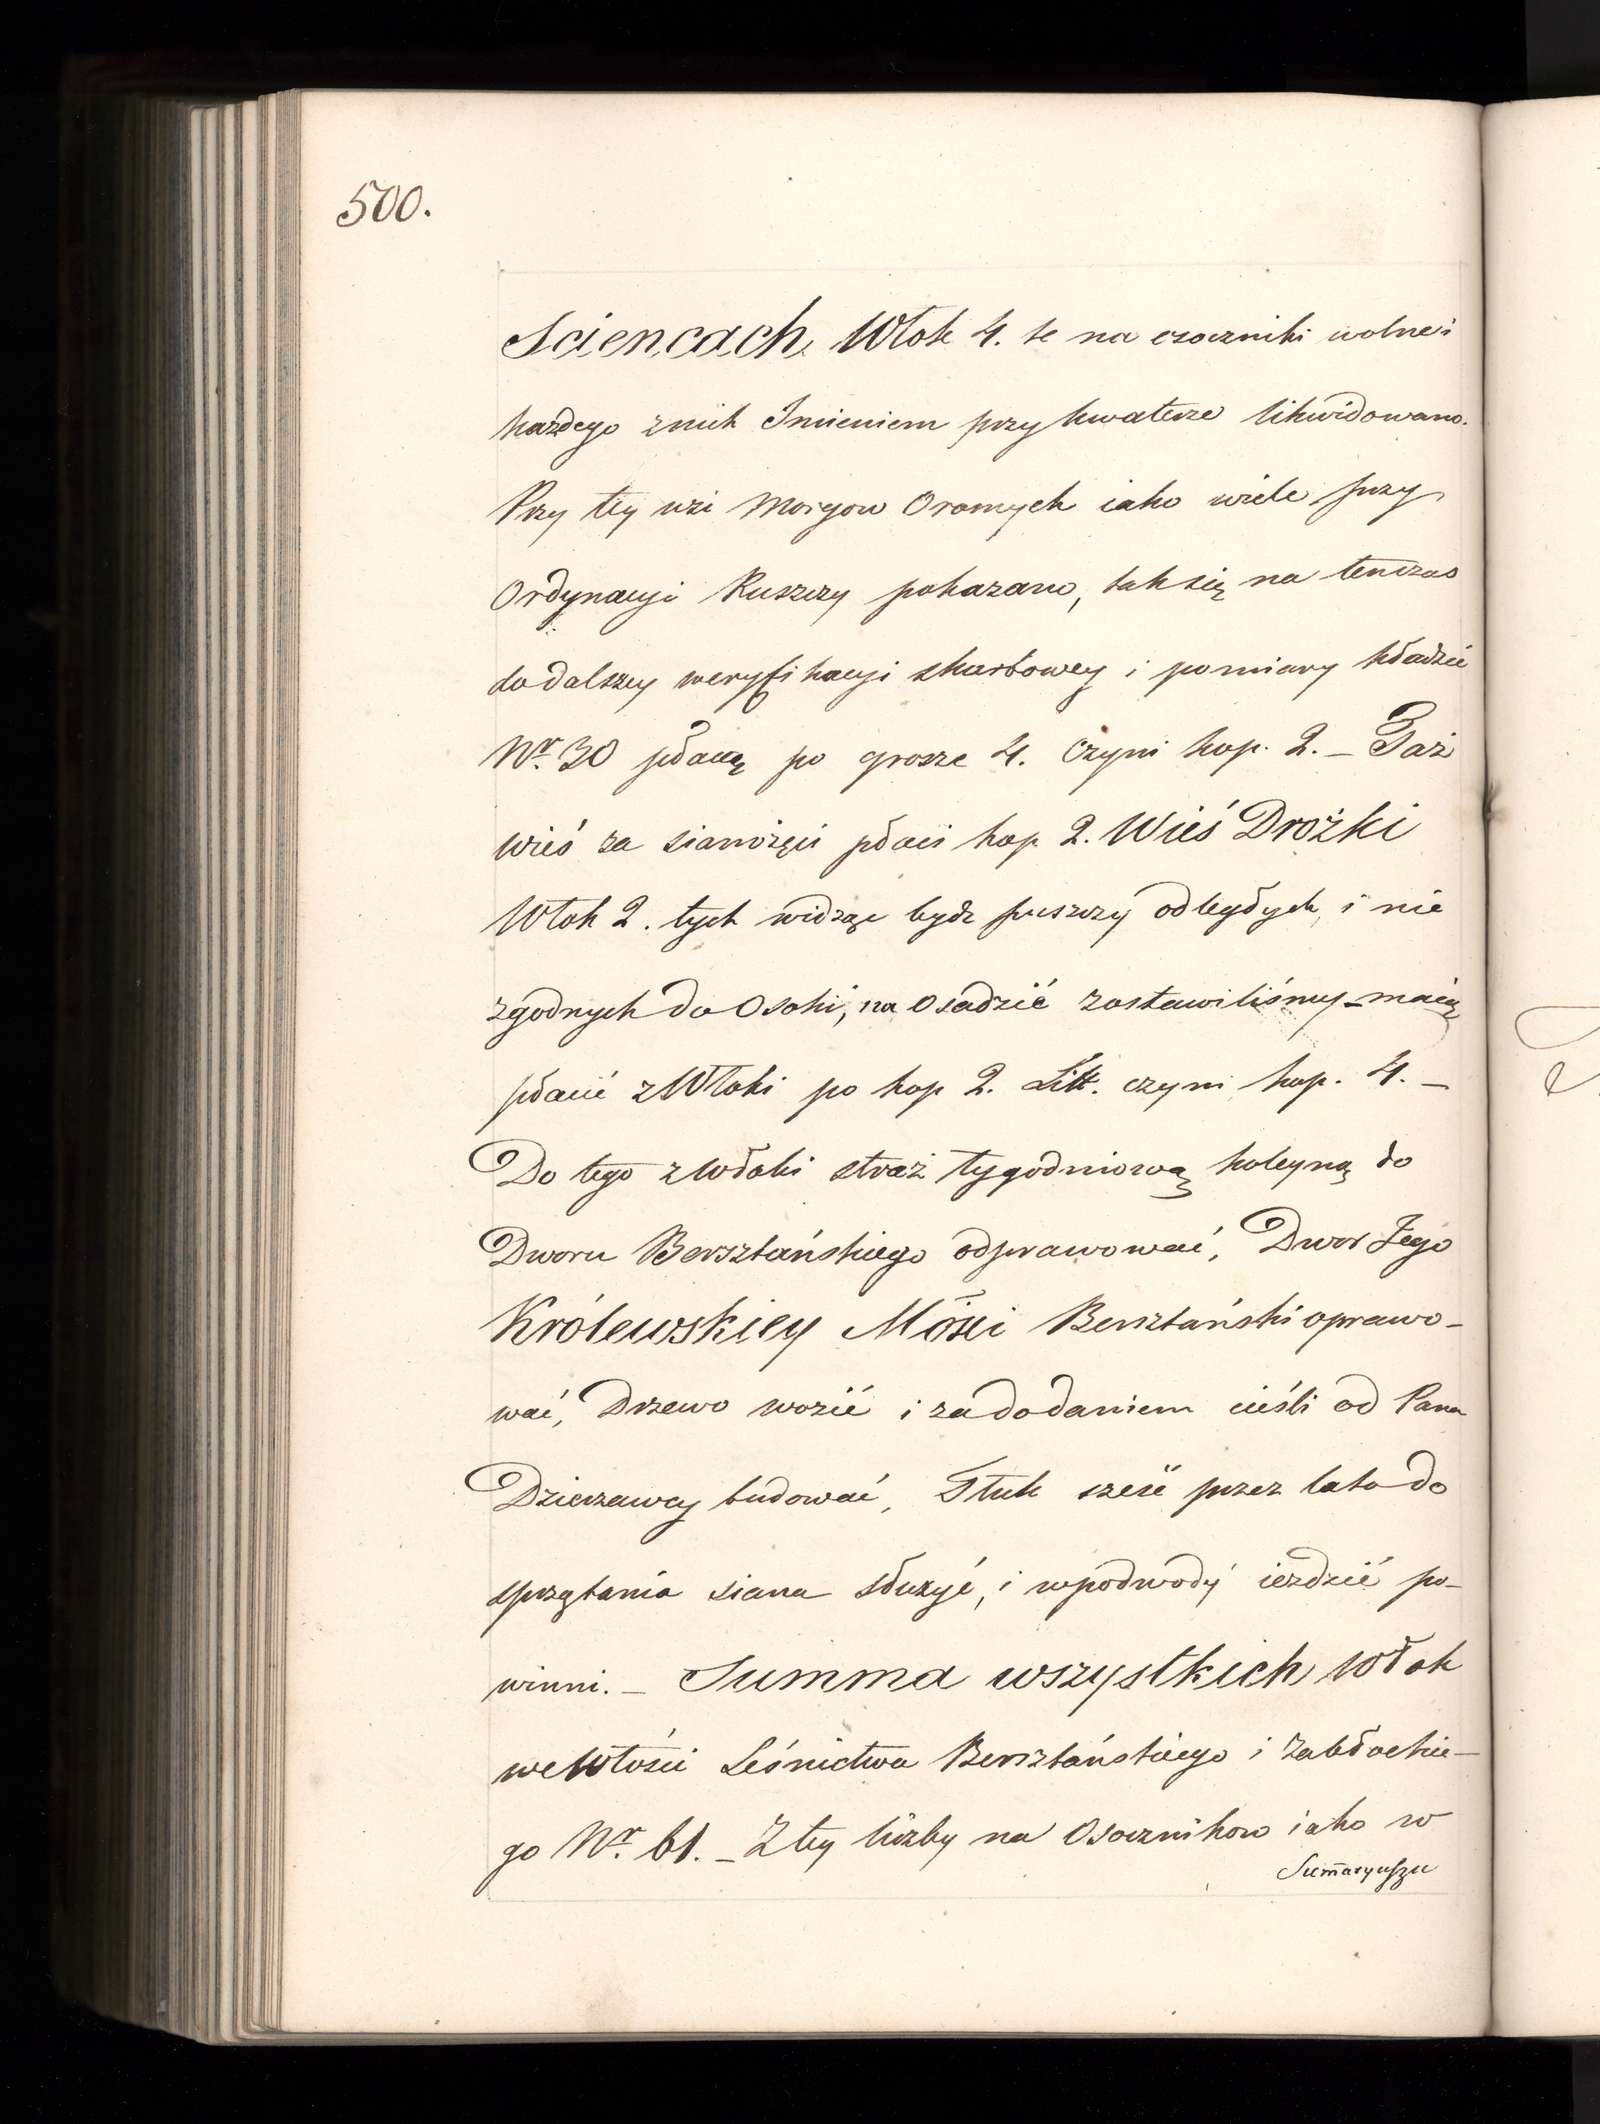 500.
Sciencach Włok 4. te na osoczniki wolne i
każdego z nich Imieniem przy kwaterze likwidowano.
Przy tey wsi Morgow Oromych iako wiele przy
Ordynacyi Puszczy pokazano, tak się na tenczas
do dalszey weryfikacyi skarbowey i pomiary kładzie
Nr. 30 płacą po grosze 4. Czyni kop. 2. – Taż
wieś za sianożęci płaci kop 2. Wieś Drożki
Włok 2. tych widząc bydz puszczy odległych, i nie
zgodnych do Osoki, na osadzić zostawiliśmy – maią
płacić z Włoki po kop 2. Litt. czyni kop. 4. –
Do tego z włoki straż tygodniową koleyną do
Dworu Bersztańskiego odprawować, Dwor Jego
Królewskiey Mości Bersztański oprawo-
wać, Drzewo wozić i za dodaniem cieśli od Pana
Dzierzawcy budować, Tłuk sześć przez lato do
sprzętania siana służyć, i w podwody ieździć po-
winni. – Summa wszystkich włok
we Włości Leśnictwa Bersztańskiego i Zabłockie-
go Nr. 61. – Z tey liczby na Osocznikow iako w
Sum̄aryuszu